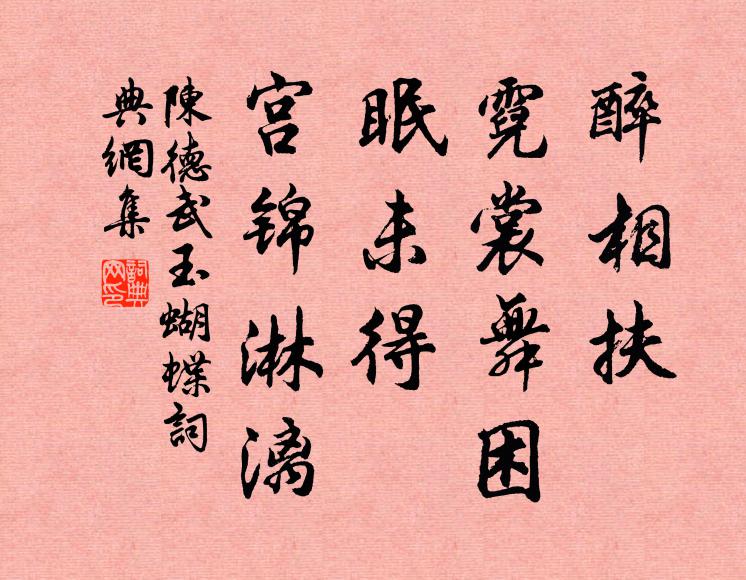 醉相扶
霓裳舞困
眠未得
宫锦淋漓
陳德武玉蝴蝶詞
典網集
詞典網印